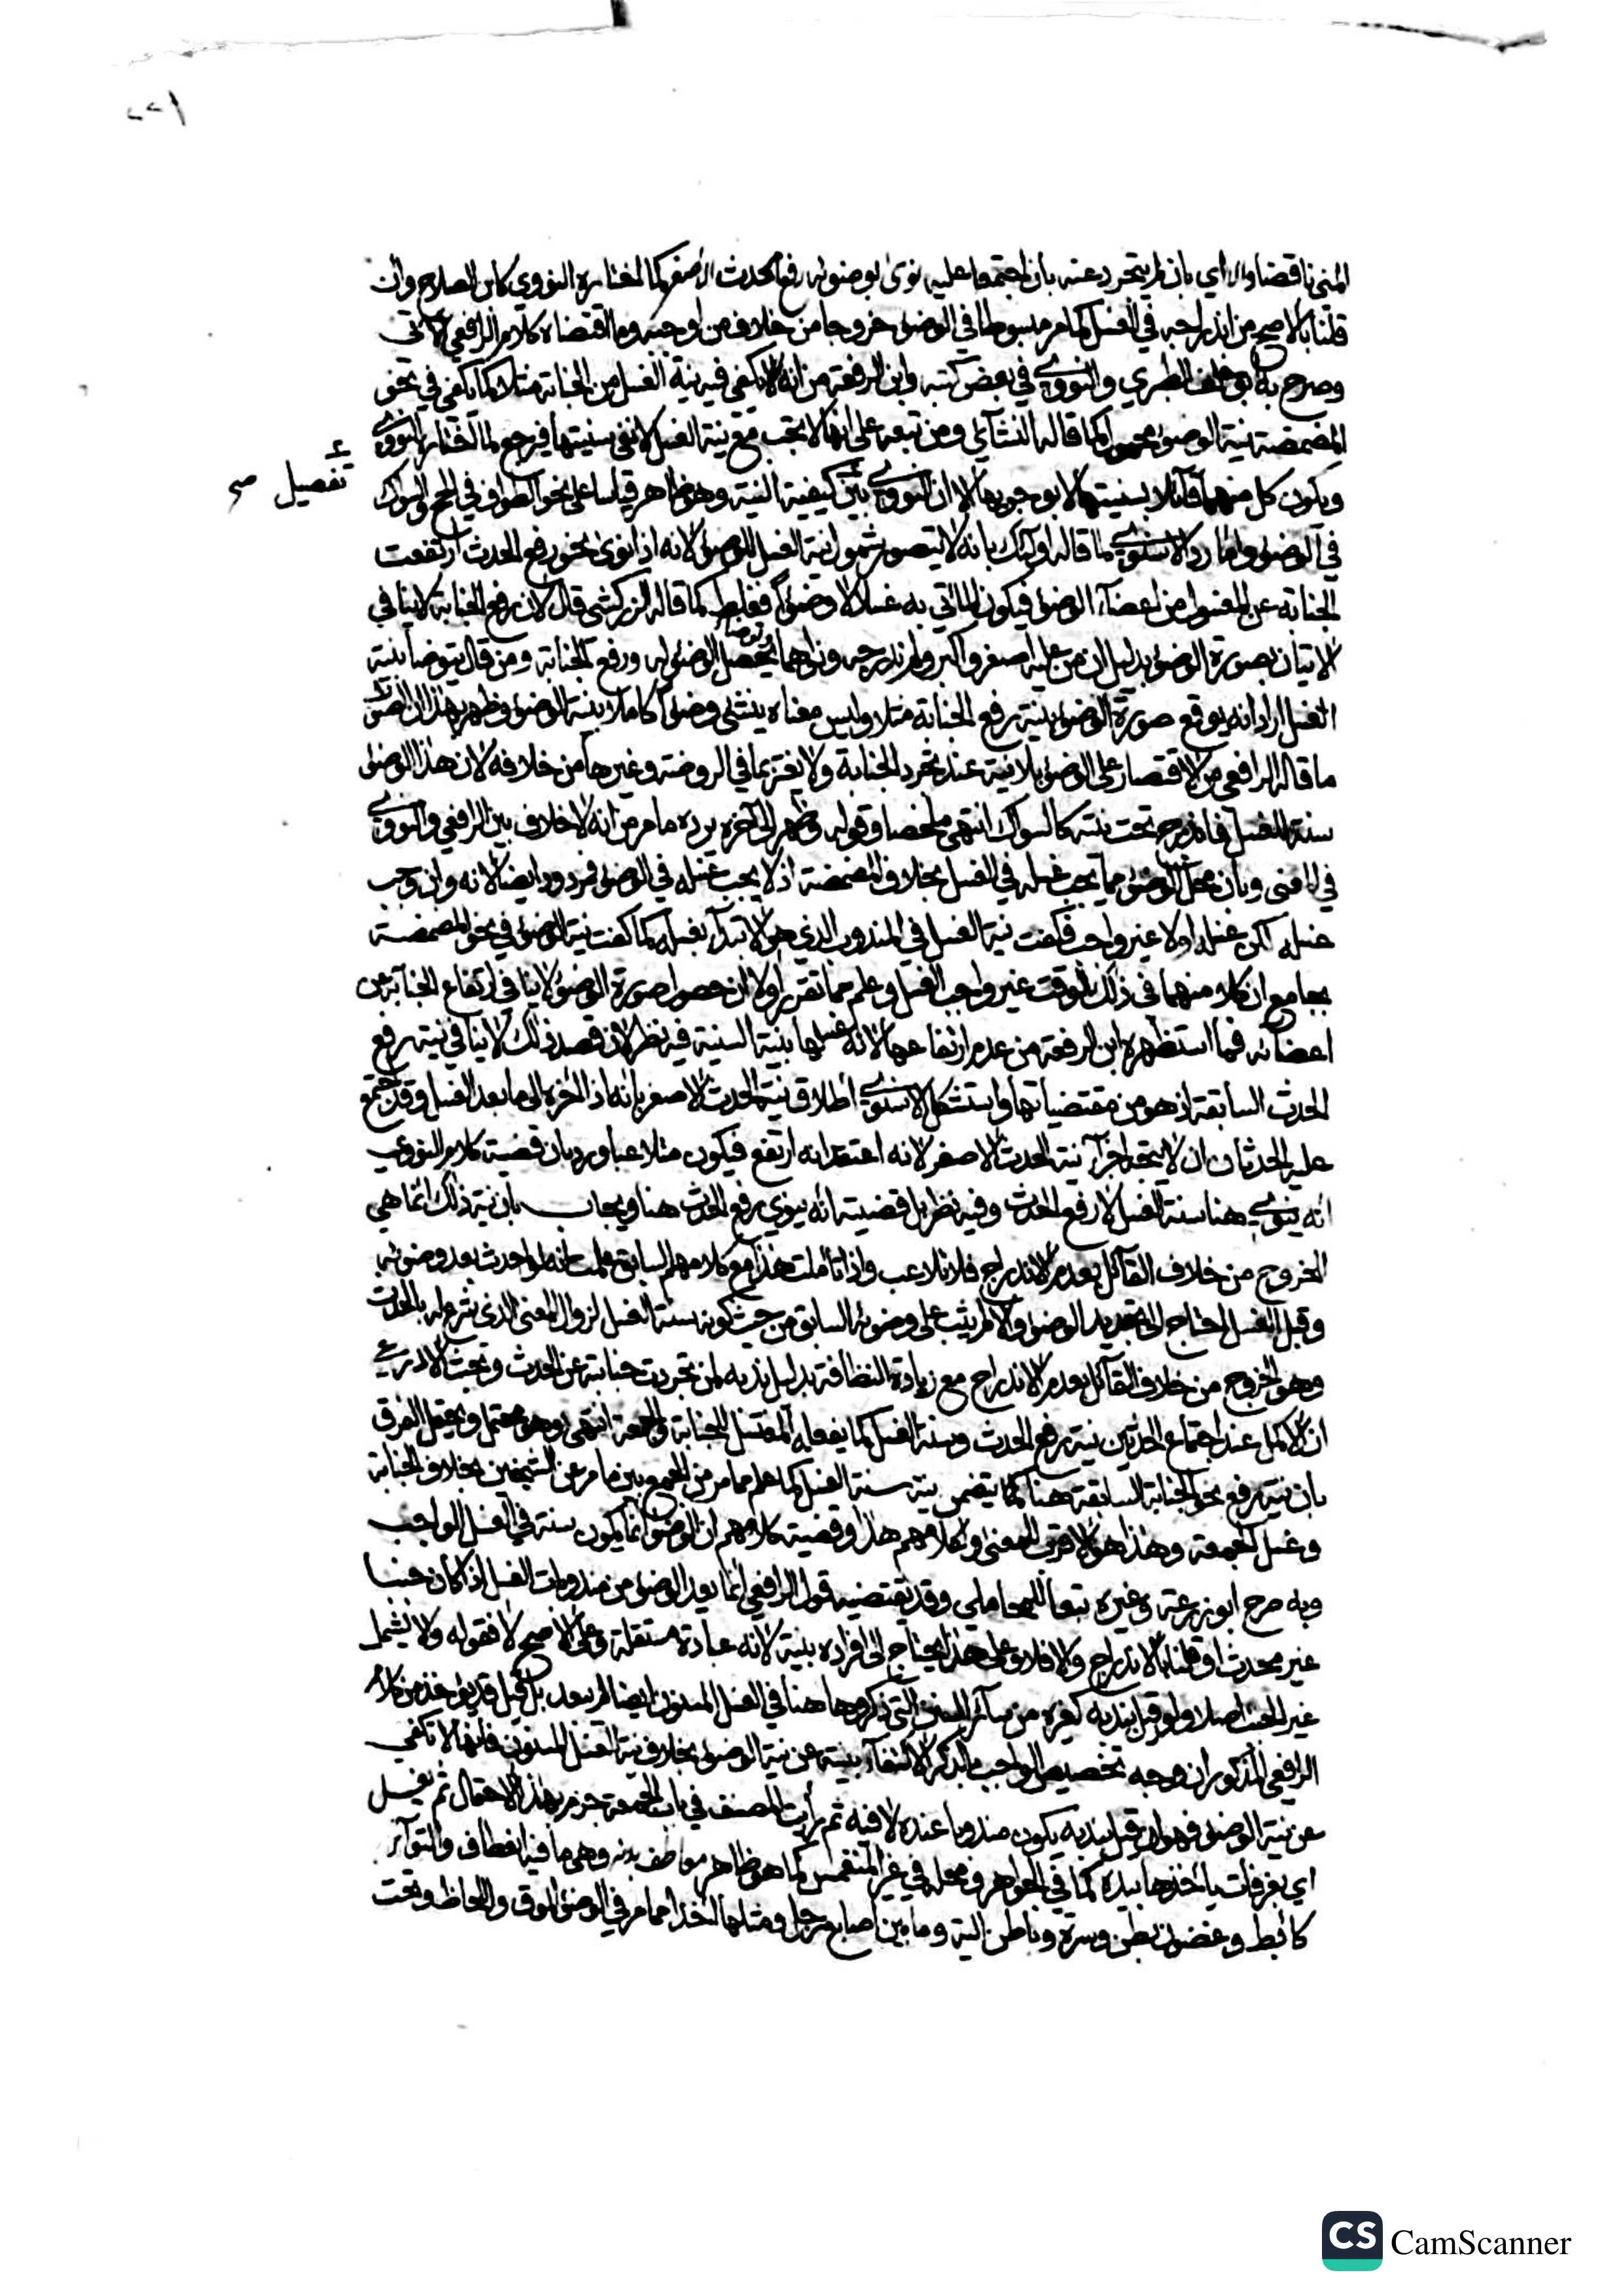 ٢٢١
المني ناقضا والا اي بان لم يتجرد عنه بان اجتمعا عليه نوى بوضوئه رفع الحدث الاصغر كما اختاره النووي كابن الصلاح وان
قلنا بالاصح من اندراجه في الغسل كما مر مبسوطا في الوضوء خروجا من خلاف من اوجبه وما اقتضاه كلام الرافعي الآتي
وصرح به ابو خلف الطبري والنووي في بعض كتبه وابن الرفعة من انه لا تكفي فيه نية الغسل من الجنابة مثلا كما تكفي في نحو
المضمضة نية الوضوء محمول كما قاله النشائي ومن تبعه على انها لا تجب مع نية الغسل لا نفي سنيتها فيرجع لما اختاره النووي
ويكون كل منهما قائلا بسنيتها لا بوجوبها الا ان النووي بين كيفية النية وهو ظاهر قياسا على نحو الطواف في الحج والسواك
تفصيل صح
في الوضوء واما رد الاسنوي ما قاله اولئك بانه لا يتصور شمول نية الغسل للوضوء لانه اذا نوى نحو رفع الحدث ارتفعت
الجنابة عن المغسول من اعضاء الوضوء فيكون الماتي به غسلا لا وضوءا فغلط كما قاله الزركشي قال لان رفع الجنابة لا ينافي
الاتيان بصورة الوضوء بدليل ان من عليه اصغر واكبر ولم ندرجه ونواهما يحصل الوضوء له ورفع الجنابة ومن قال يتوضا بنية
الغسل اراد انه يوقع صورة الوضوء بنية رفع الجنابة مثلا وليس معناه ينشئ وضوءا كاملا بنية الوضوء وظهر بهذا ان الصواب
ما قاله الرافعي من الاقتصار على الوضوء بلا نية عند تجرد الجنابة ولا يغتر بما في الروضة وغيرها من خلافه لان هذا الوضوء
سنة الغسل فاندرج تحت نيته كالسواك انتهى ملخصا وقوله وظهر الى آخره يرده ما مر من انه لا خلاف بين الرافعي والنووي
في المعنى وبان محل الوضوء مما يجب غسله في الغسل بخلاف المضمضة اذ لا يجب غسله في الوضوء فمردود ايضا لانه وان وجب
غسله لكن غسله اولا غير واجب فكفت نية الغسل في المندوب الذي هو الابتداء بغسله كما كفت نية الوضوء في نحو المضمضة
بجامع ان كلا منهما في ذلك الوقت غير واجب الغسل وعلم مما تقرر اولا ان حصول صورة الوضوء لا ينافي ارتفاع الجنابة عن
اعضائه فما استظهره ابن الرفعة من عدم ارتفاعها لانه غسلها بنية السنية فيه نظر لان قصد ذلك لا ينافي نية رفع
الحدث السابقة اذ هو من مقتضياتها واستشكل الاسنوي اطلاق نية الحدث الاصغر بانه اذا اخره الى ما بعد الغسل وقد اجتمع
عليه الحدثان ان لا يتجه اجزاء نية الحدث الاصغر لانه اعتقد انه ارتفع فيكون متلاعبا ورد بان قضية كلام النووي
انه ينوي هنا سنة الغسل لا رفع الحدث وفيه نظر بل قضيته انه ينوي رفع الحدث هنا ويجاب بان نية ذلك انما هي
الخروج من خلاف القائل بعدم الاندراج فلا تلاعب واذا تاملت هذا مع كلامهم السابق علمت انه لو احدث بعد وضوئه
وقبل الغسل احتاج الى تجديد الوضوء والا لم يثب على وضوئه السابق من حيث كونه سنة الغسل لزوال المعنى الذي شرع له بالحدث
وهو الخروج من خلاف القائل بعدم الاندراج مع زيادة النظافة بدليل ندبه لمن تجردت جنابته عن الحدث وبحث الاذرعي
ان الاكمل عند اجتماع الحدثين نية رفع الحدث وسنة الغسل كما يفعله المغتسل للجنابة والجمعة انتهى وهو محتمل ويحتمل الفرق
بان نية رفع نحو الجنابة السابقة هنا كما يتضمن نية سنة الغسل كما علم مما مر من الجمع بين ما مر عن الشيخين بخلاف الجنابة
وغسل الجمعة وهذا هو الاقرب للمعنى وكلامهم هذا وقضية كلامهم ان الوضوء انما يكون سنة في الغسل الواجب
وبه صرح ابو زرعة وغيره تبعا للمحاملي وقد يقتضيه قول الرافعي انما يعد الوضوء من مندوبات الغسل اذا كان جنبا
غير محدث او قلنا بالاندراج والا فلا وعلى هذا يحتاج الى افراده بنية لانه عبادة مستقلة وعلى الاصح لا فقوله ولا يشمل
غير الجنب اصلا ولو قيل بندبه كغيره من سائر السنن التي ذكروها هنا في الغسل المسنون ايضا لم يبعد بل قيل قد يؤخذ من كلام
الرافعي المذكور ان وجه تخصيص الواجب بالذكر الاكتفاء بنيته عن نية الوضوء بخلاف نية الغسل المسنون فانها لا تكفي
عن نية الوضوء فهو ان قيل بندبه يكون مندوبا عنده لا فيه ثم رايت المصنف في باب الجمعة جزم بهذا الاحتمال ثم يغسل
اي بغرفات ياخذها بيده كما في الجواهر ومحله في غير المنغمس كما هو ظاهر معاطف بدنه وهي ما فيه انعطاف والتواء
كابط وغضون بطن وسرة وباطن الية وما بين اصابع رجل ومثلها اخذا مما مر في الوضوء الموق واللحاظ وتحت
CS CamScanner